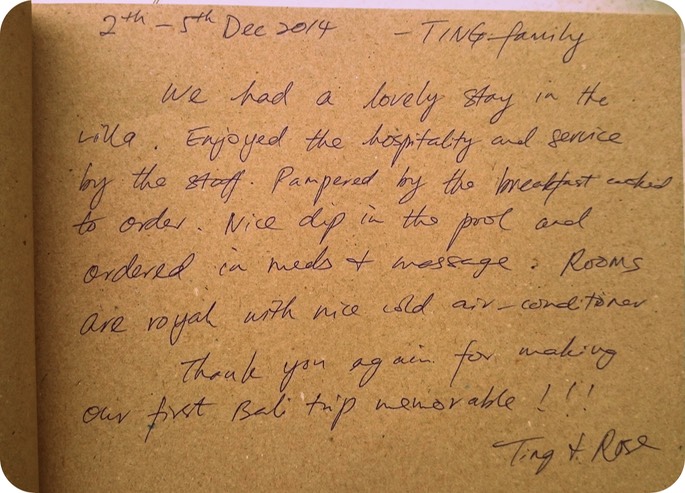 2th - 5th Dec 2014 - TING family
We had a lovely stay in the
villa. Enjoyed the hospitality and service
by the staff. Pampered by the breakfast cooked
to order. Nice dip in the pool and
ordered in meds + massage. Rooms
are royal with nice cold air-conditioner
Thank you again for making
our first Bali trip memorable!!!
Ting & Rose